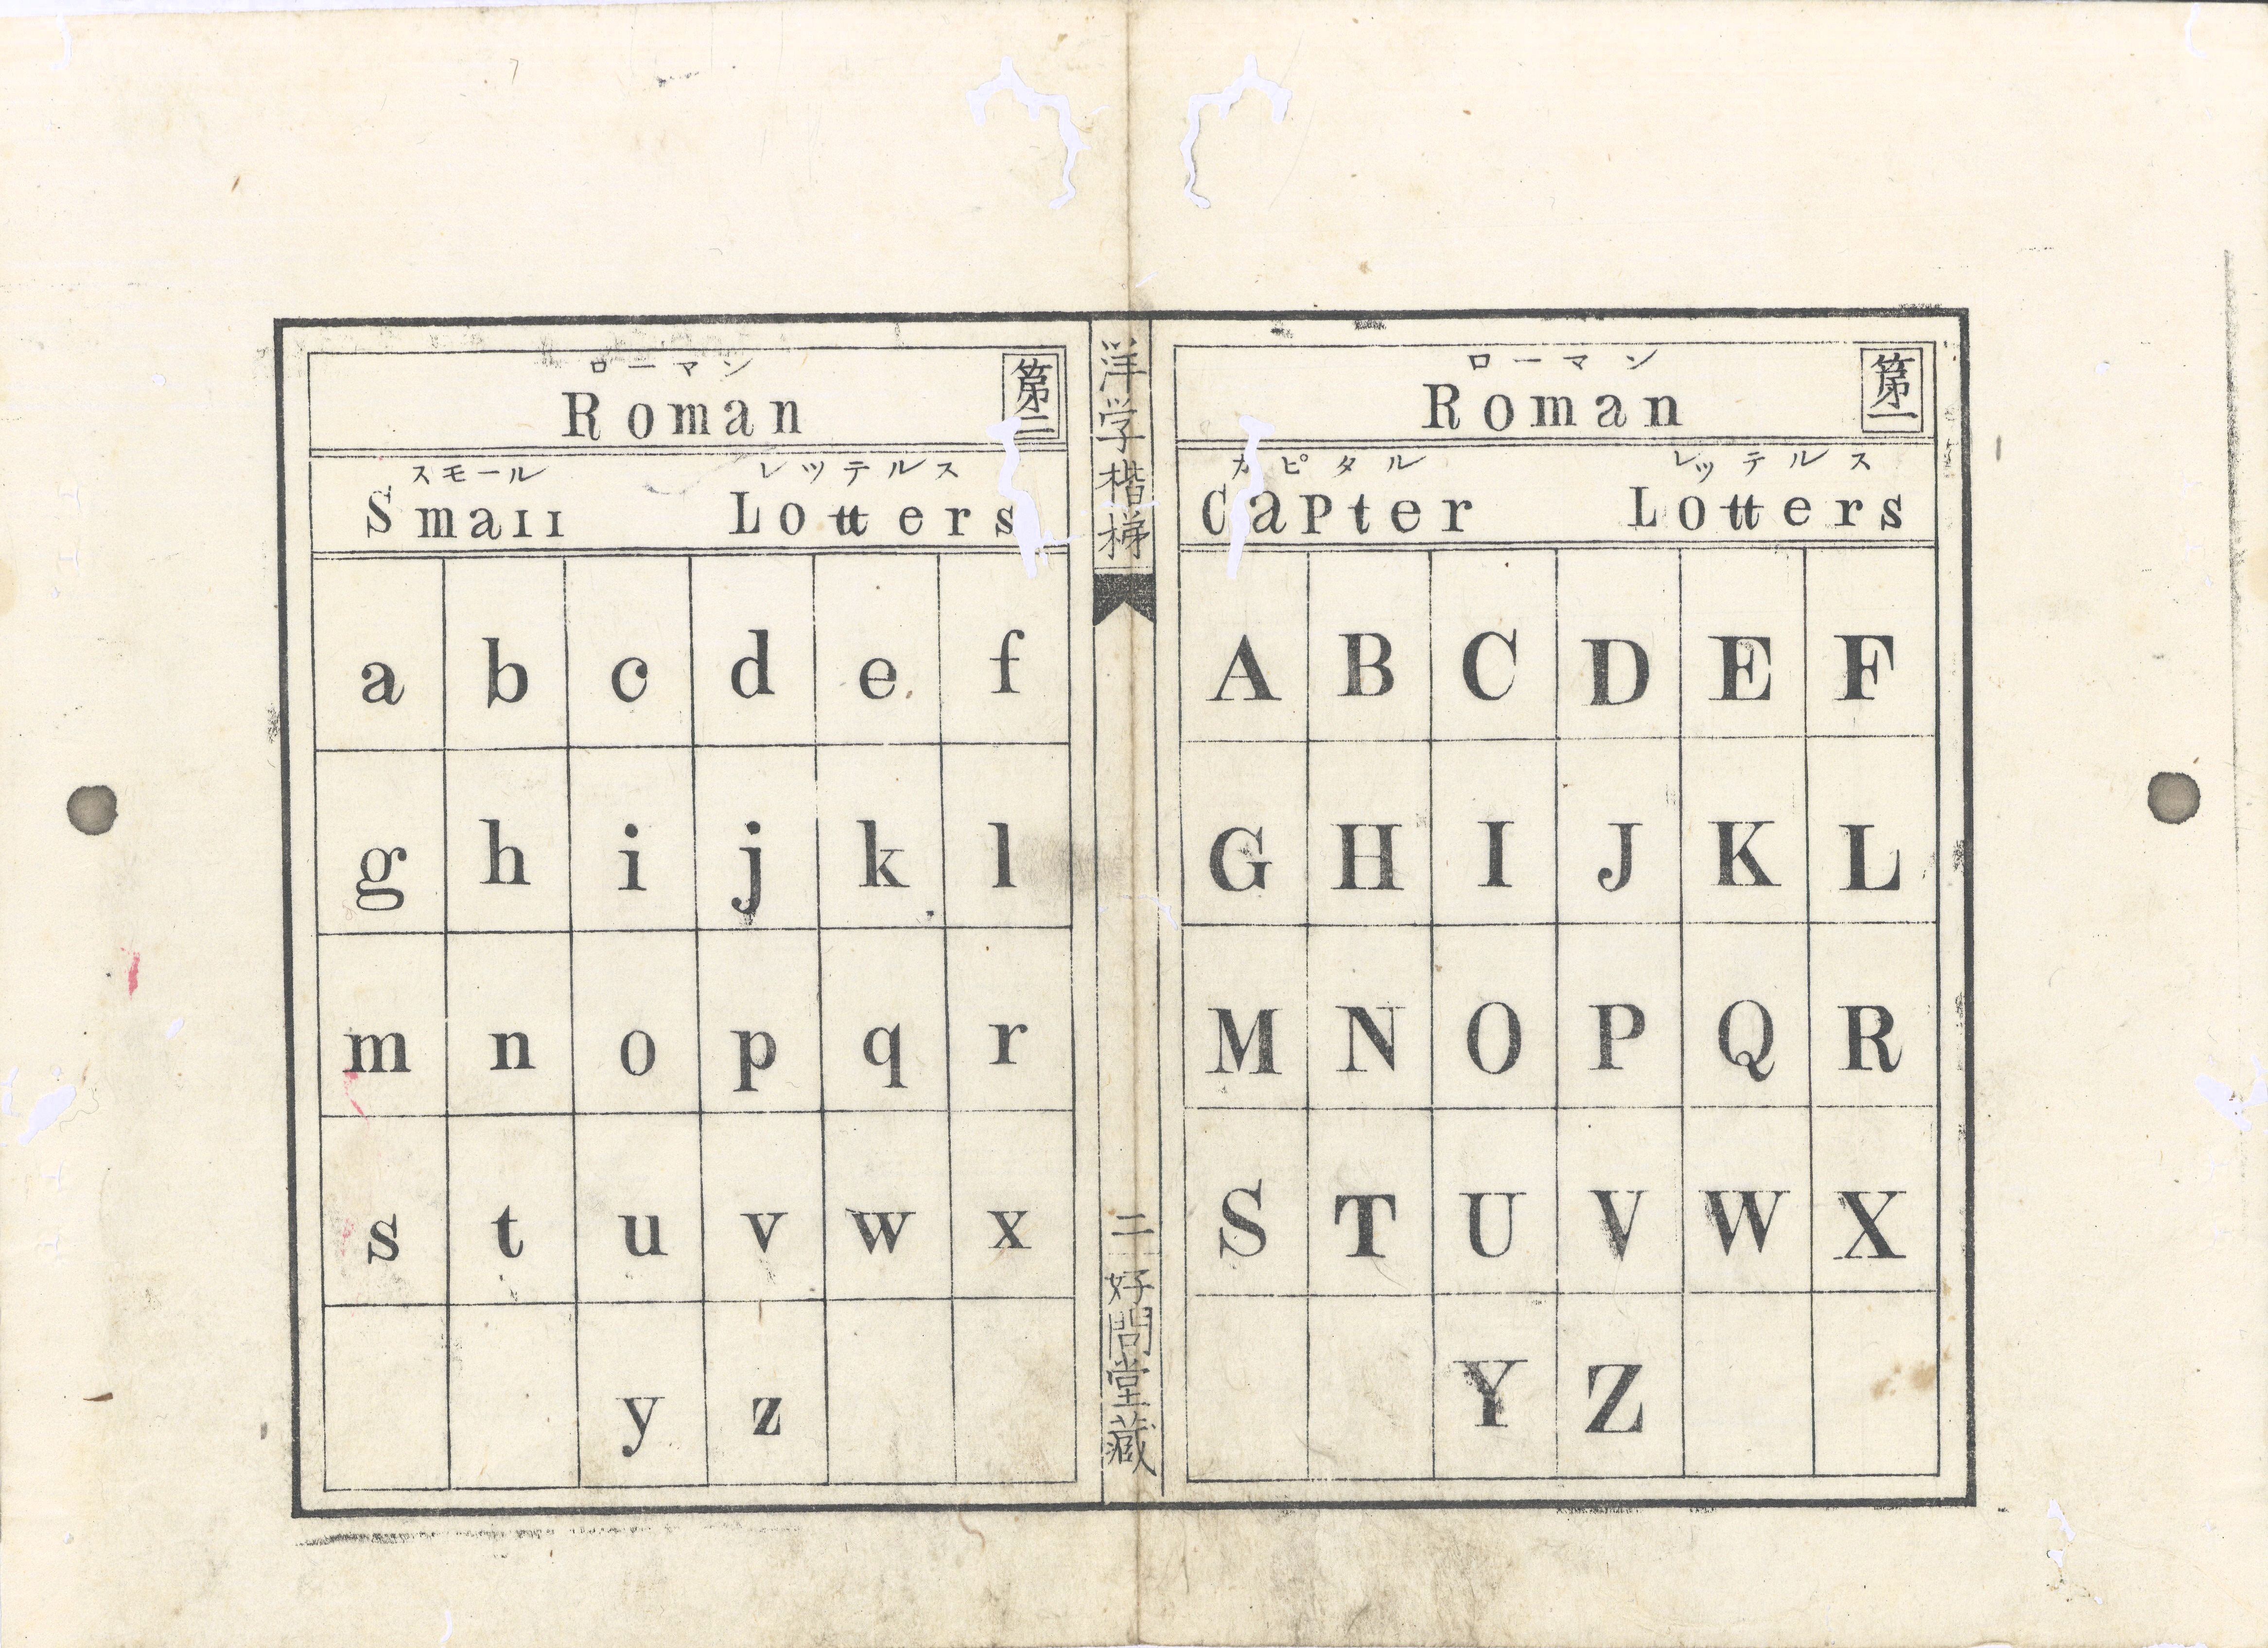 第一
ローマン
Roman
カピタル レッテルス
Capter Lotters
A B C D E F
G H I J K L
M N O P Q R
S T U V W X
Y Z
洋学楷梯
二
好問堂藏
第二
ローマン
Roman
スモール レッテルス
Smaıı Lotters
a b c d e f
g h i j k l
m n o p q r
s t u v w x
y z